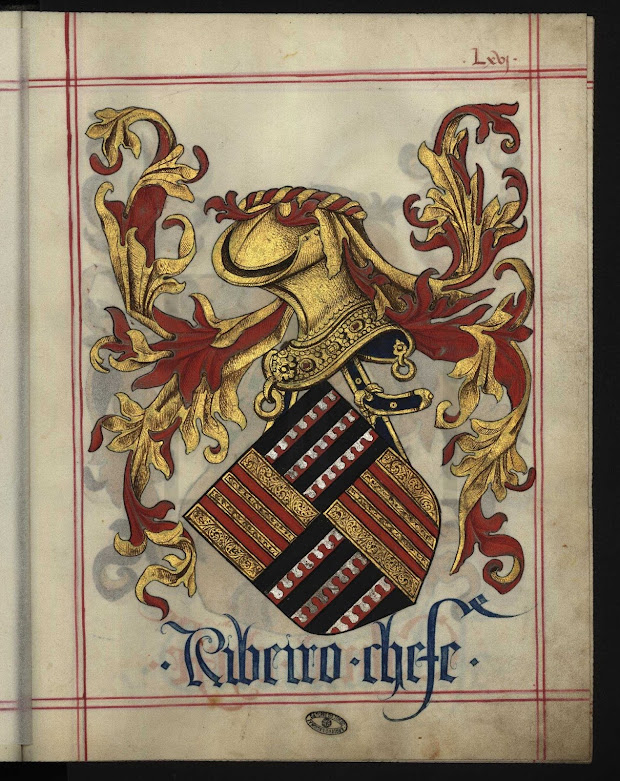 · Lxbj ·
· Ribeiro · chefe ·